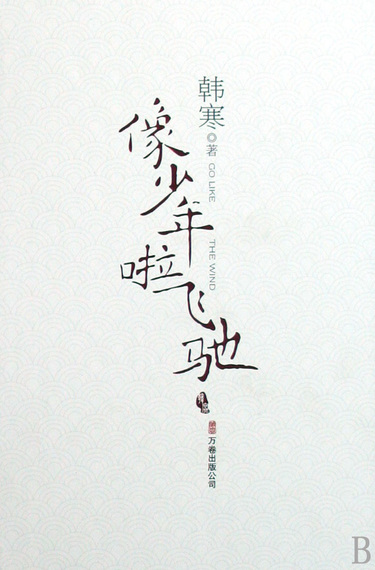 韩寒
著
GO LIKE THE WIND
像少年啦飞驰
万卷出版公司
B